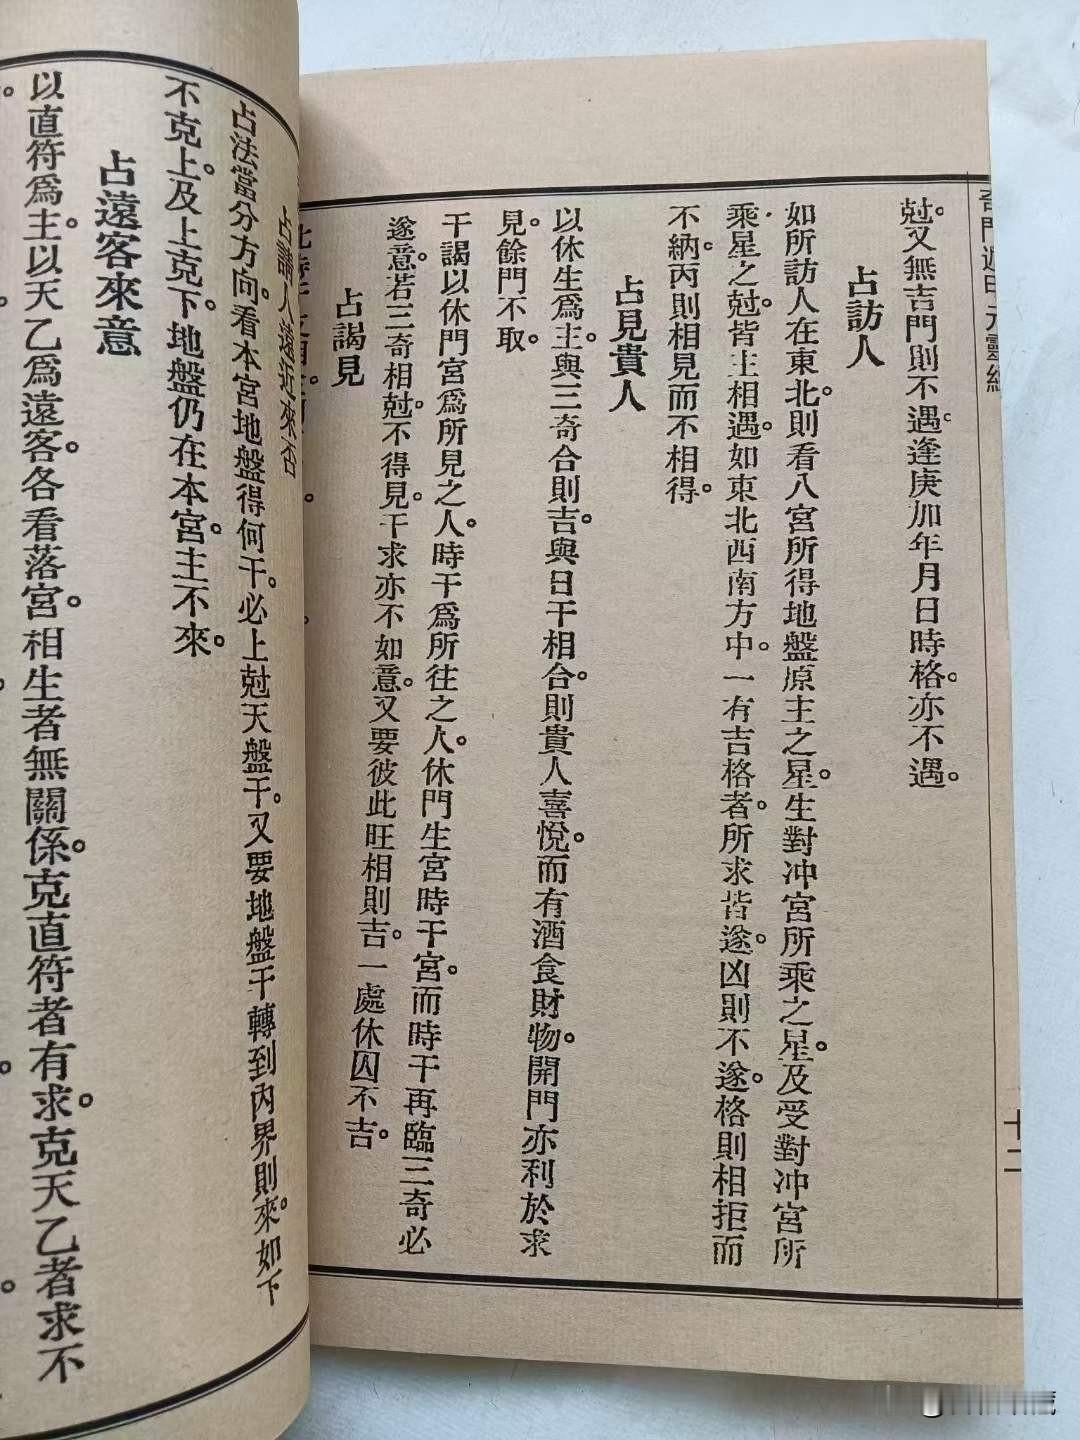 尅。又無吉門則不遇。逢庚加年月日時格。亦不遇。
占訪人
如所訪人在東北。則看八宮所得地盤原主之星。生對冲宮所乘之星。及受對冲宮所
乘星之尅。皆主相遇。如東北西南方中。一有吉格者。所求皆遂。凶則不遂。格則相拒而
不納。丙則相見而不相得。
占見貴人
以休生爲主。與三奇合則吉。與日干相合。則貴人喜悅。而有酒食財物。開門亦利於求
見。餘門不取。
占謁見
干謁以休門宮爲所見之人。時干爲所往之人。休門生宮時干宮。而時干再臨三奇必
遂意。若三奇相尅。不得見。干求亦不如意。又要彼此旺相則吉。一處休囚不吉。
十二
占請人遠近來否
占法當分方向。看本宮地盤得何干。必上尅天盤干。又要地盤干轉到內界則來。如下
不克上。及上克下。地盤仍在本宮。主不來。
占遠客來意
以直符爲主。以天乙爲遠客。各看落宮。相生者無關係。克直符者有求。克天乙者求不